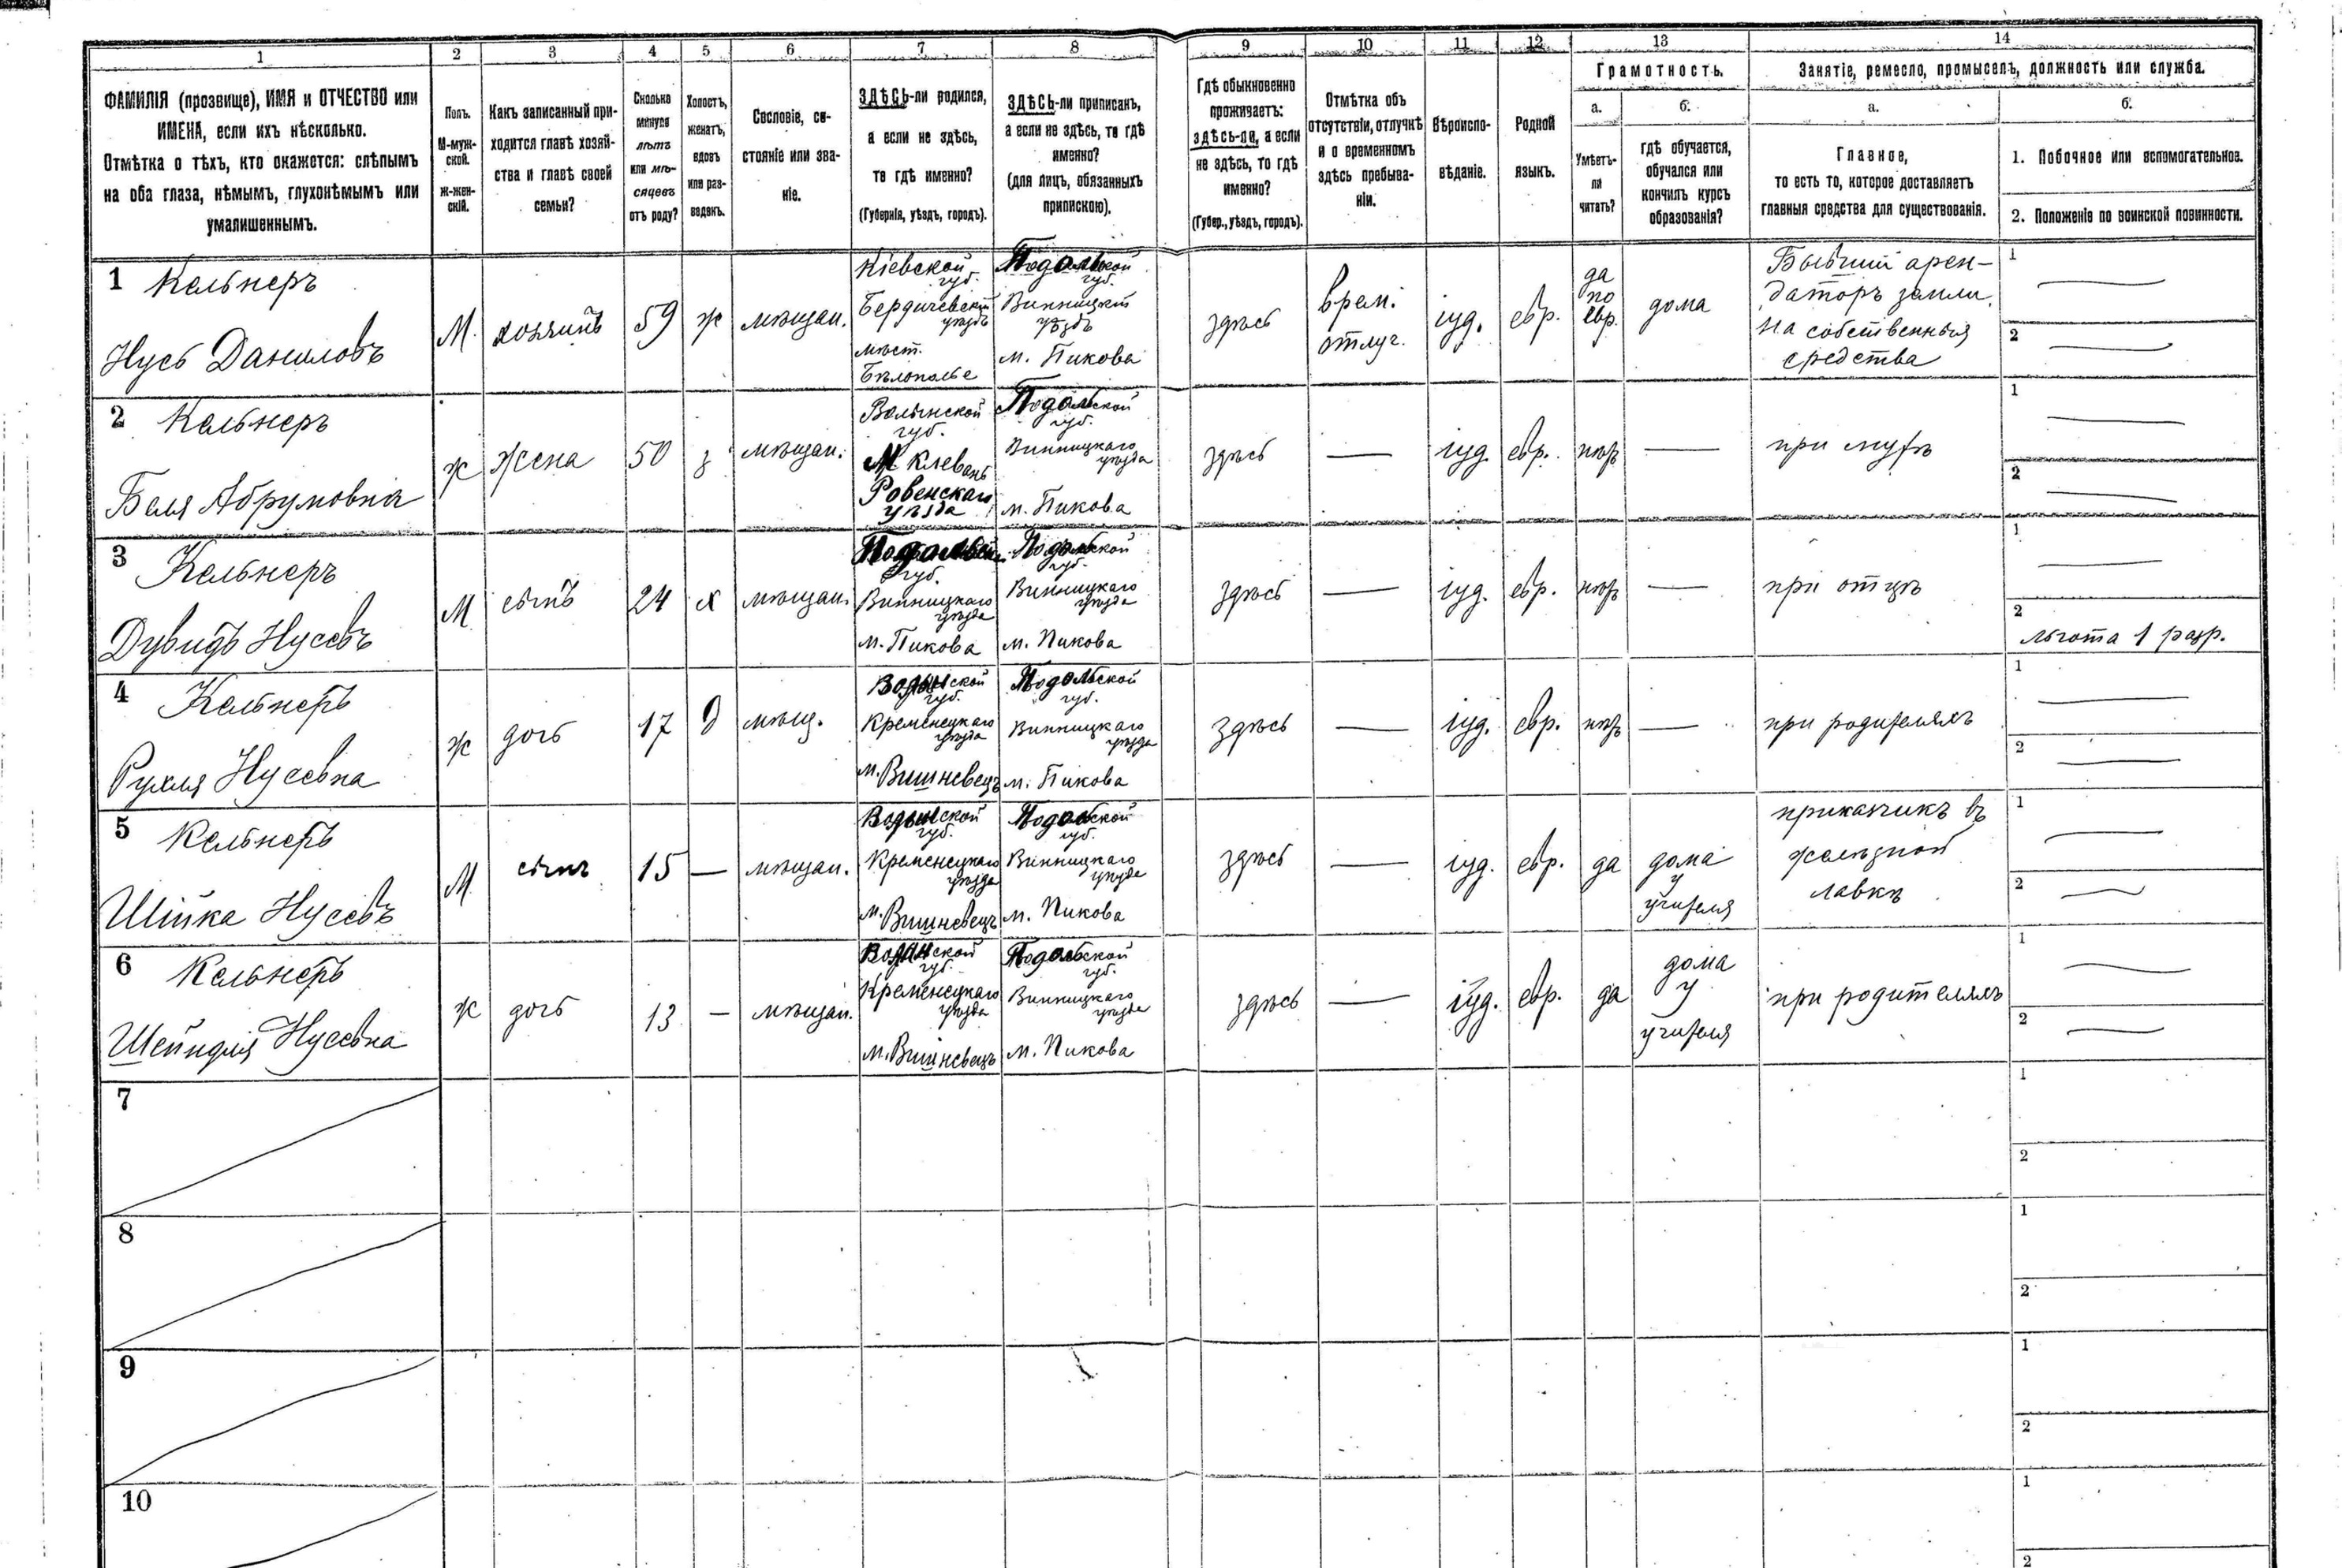 1 2 3 4 5 6 7 8 9 10 11 12 13 14
ФАМИЛІЯ (прозвище), ИМЯ и ОТЧЕСТВО или
ИМЕНА, если ихъ нѣсколько.
Отмѣтка о тѣхъ, кто окажется: слѣпымъ
на оба глаза, нѣмымъ, глухонѣмымъ или
умалишеннымъ.
Полъ.
М-муж-
ской.
Ж-жен-
скій.
Какъ записанный при-
ходится главѣ хозяй-
ства и главѣ своей
семьи?
Сколько
минуло
лѣтъ
или мѣ-
сяцевъ
отъ роду?
Холостъ,
женатъ,
вдовъ
или раз-
веденъ.
Сословіе, со-
стояніе или зва-
ніе.
ЗДѢСЬ-ли родился,
а если не здѣсь,
то гдѣ именно?
(Губернія, уѣздъ, городъ).
ЗДѢСЬ-ли приписанъ,
а если не здѣсь, то гдѣ
именно?
(для лицъ, обязанныхъ
припискою).
Гдѣ обыкновенно
проживаетъ:
здѣсь-ли, а если
не здѣсь, то гдѣ
именно?
(Губер., уѣздъ, городъ).
Отмѣтка объ
отсутствіи, отлучкѣ
и о временномъ
здѣсь пребыва-
ніи.
Вѣроиспо-
вѣданіе.
Родной
языкъ.
Грамотность.
а.
Умѣетъ-
ли
читать?
б.
гдѣ обучается,
обучался или
кончилъ курсъ
образованія?
Занятіе, ремесло, промыселъ, должность или служба.
а.
Главное,
то есть то, которое доставляетъ
главныя средства для существованія.
б.
1. Побочное или вспомогательное.
2. Положеніе по воинской повинности.
1 Кельнеръ
Нусь Даниловъ
М.
хозяинъ
59
ж
мѣщан.
Кіевской
губ.
Бердичевскій
уѣздъ
мѣст.
Бѣлополье
Подольской
губ.
Винницкій
уѣздъ
м. Пикова
здѣсь
врем.
отлуч.
іуд.
евр.
да
по
евр.
дома
Бывшій арен-
даторъ земли.
На собственныя
средства
1
2
2 Кельнеръ
Беля Абрумовна
ж
жена
50
з
мѣщан.
Волынской
губ.
М Клевань
Ровенскаго
уѣзда
Подольской
губ.
Винницкаго
уѣзда
м. Пикова
здѣсь
—
іуд.
евр.
нѣтъ
—
при мужѣ
1
2
3 Кельнеръ
Дувидъ Нусевъ
М
сынъ
24
х
мѣщан.
Подольской
губ.
Винницкаго
уѣзда
м. Пикова
Подольской
губ.
Винницкаго
уѣзда
м. Пикова
здѣсь
—
іуд.
евр.
нѣтъ
—
при отцѣ
1
2
льгота 1 разр.
4 Кельнеръ
Рухля Нусевна
ж
дочь
17
д
мѣщ.
Волынской
губ.
Кременецкаго
уѣзда
м. Вишневецъ
Подольской
губ.
Винницкаго
уѣзда
м. Пикова
здѣсь
—
іуд.
евр.
нѣтъ
—
при родителяхъ
1
2
5 Кельнеръ
Шійка Нусевъ
М
сынъ
15
—
мѣщан.
Волынской
губ.
Кременецкаго
уѣзда
м. Вишневецъ
Подольской
губ.
Винницкаго
уѣзда
м. Пикова
здѣсь
—
іуд.
евр.
да
дома
у
учителя
приказчикъ въ
желѣзной
лавкѣ
1
2
6 Кельнеръ
Шейндля Нусевна
ж
дочь
13
—
мѣщан.
Волынской
губ.
Кременецкаго
уѣзда
м. Вишневецъ
Подольской
губ.
Винницкаго
уѣзда
м. Пикова
здѣсь
—
іуд.
евр.
да
дома
у
учителя
при родителяхъ
1
2
7
1
2
8
1
2
9
1
2
10
1
2